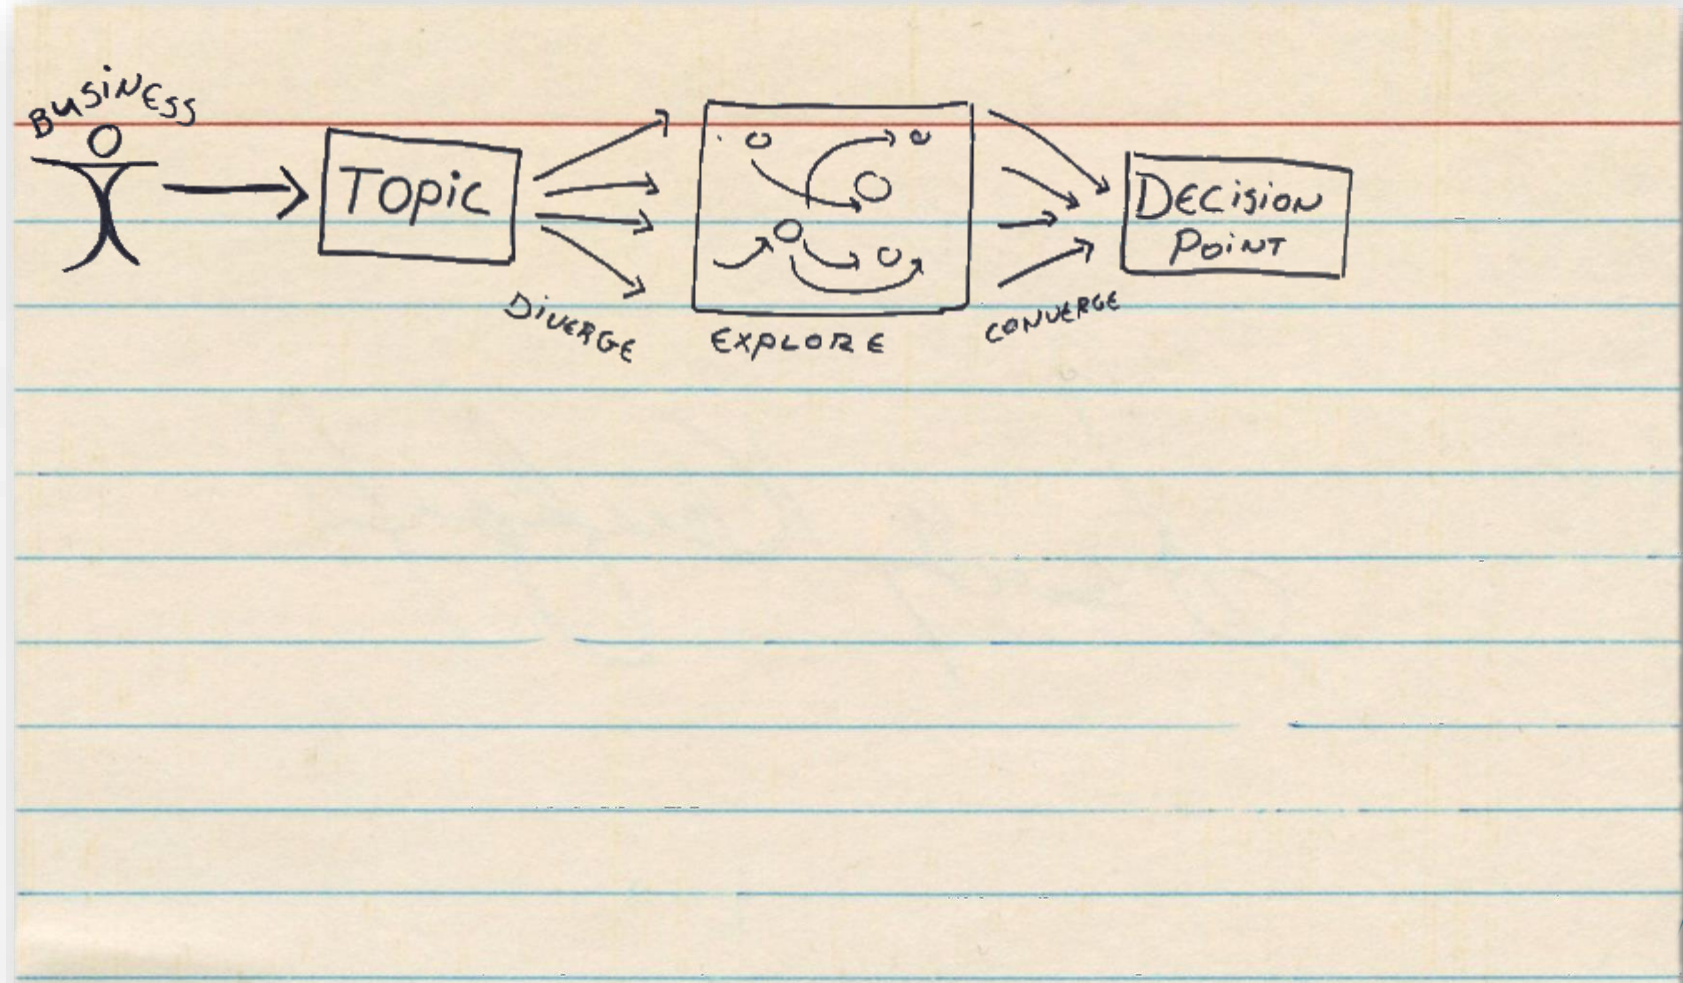 BUSINESS
TOPIC
DIVERGE
EXPLORE
CONVERGE
DECISION
POINT